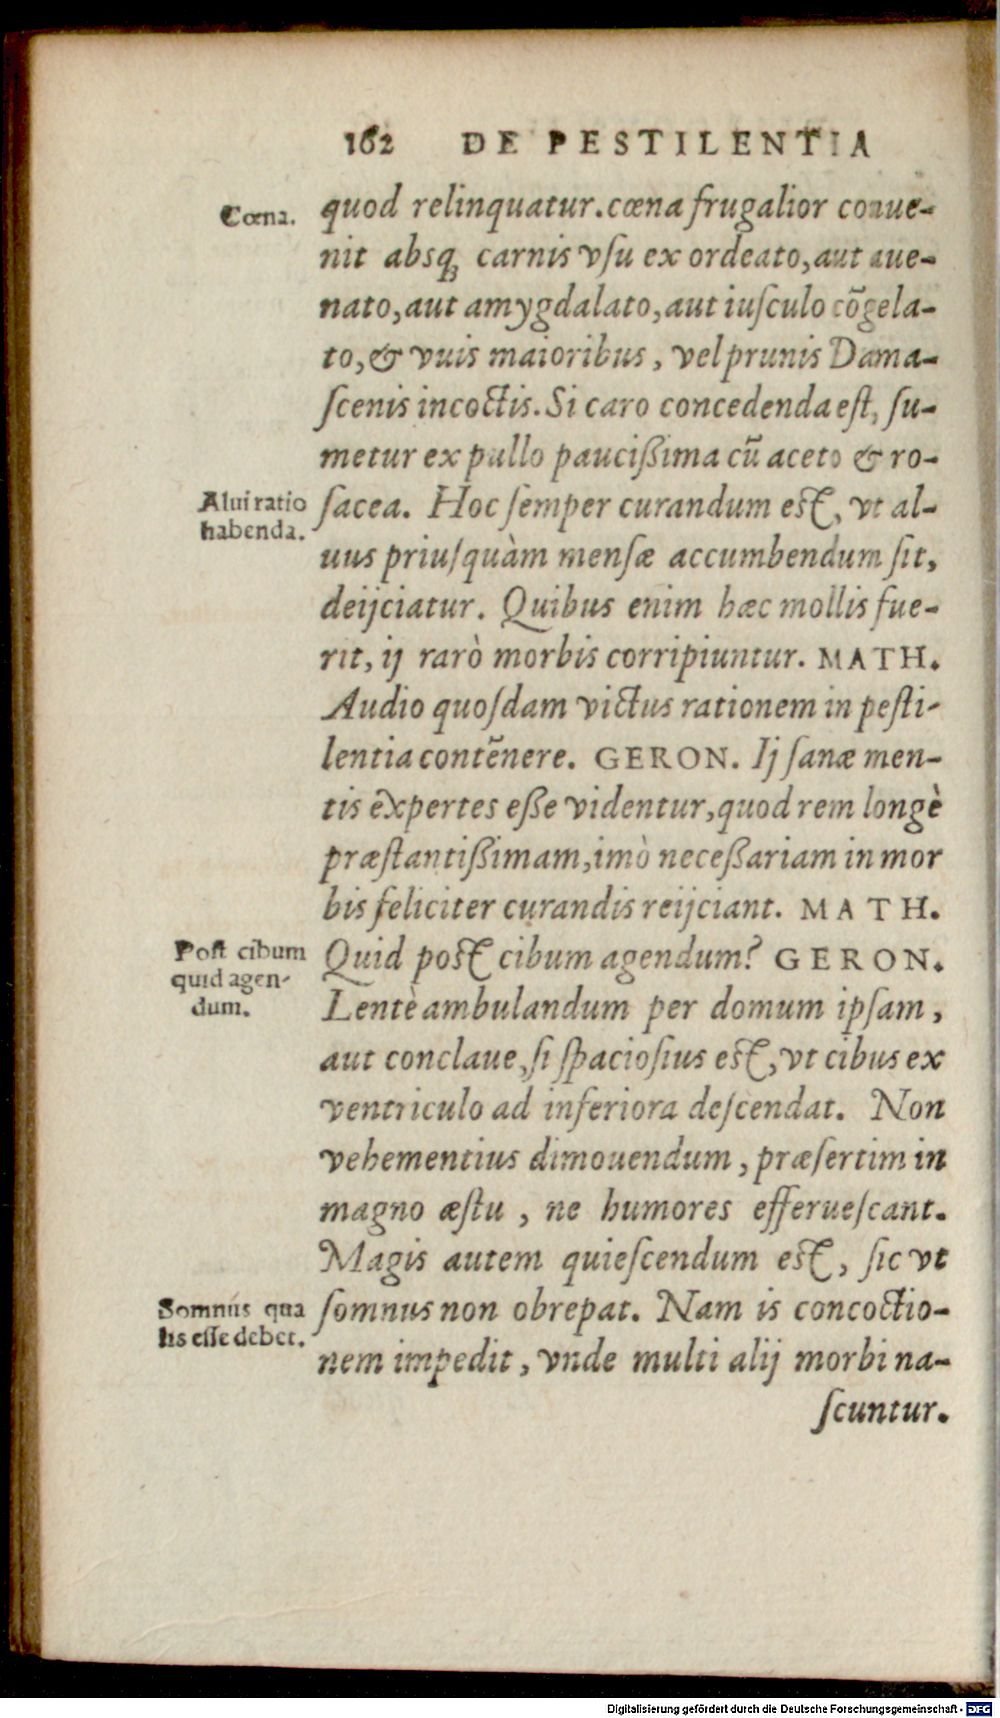 162 DE PESTILENTIA
Cœna.
quod relinquatur. cœna frugalior conue-
nit absq; carnis vſu ex ordeato, aut aue-
nato, aut amygdalato, aut iuſculo cõgela-
to, & vuis maioribus, vel prunis Dama-
ſcenis incoctis. Si caro concedenda eſt, ſu-
metur ex pullo pauciſſima cũ aceto & ro-
Alui ratio
habenda.
ſacea. Hoc ſemper curandum est, vt al-
uus priuſquàm menſæ accumbendum ſit,
deijciatur. Quibus enim hæc mollis fue-
rit, ij rarò morbis corripiuntur. MATH.
Audio quoſdam victus rationem in peſti-
lentia contẽnere. GERON. Ij ſanæ men-
tis expertes eſſe videntur, quod rem longè
præſtantiſſimam, imò neceſſariam in mor
bis feliciter curandis reijciant. MATH.
Poſt cibum
quid agen-
dum.
Quid post cibum agendum? GERON.
Lentè ambulandum per domum ipſam,
aut conclaue, ſi ſpacioſius est, vt cibus ex
ventriculo ad inferiora deſcendat. Non
vehementius dimouendum, præſertim in
magno æſtu, ne humores efferueſcant.
Magis autem quieſcendum est, ſic vt
Somnus qua
lis eſſe debet.
ſomnus non obrepat. Nam is concoctio-
nem impedit, vnde multi alij morbi na-
ſcuntur.
Digitalisierung gefördert durch die Deutsche Forschungsgemeinschaft - DFG